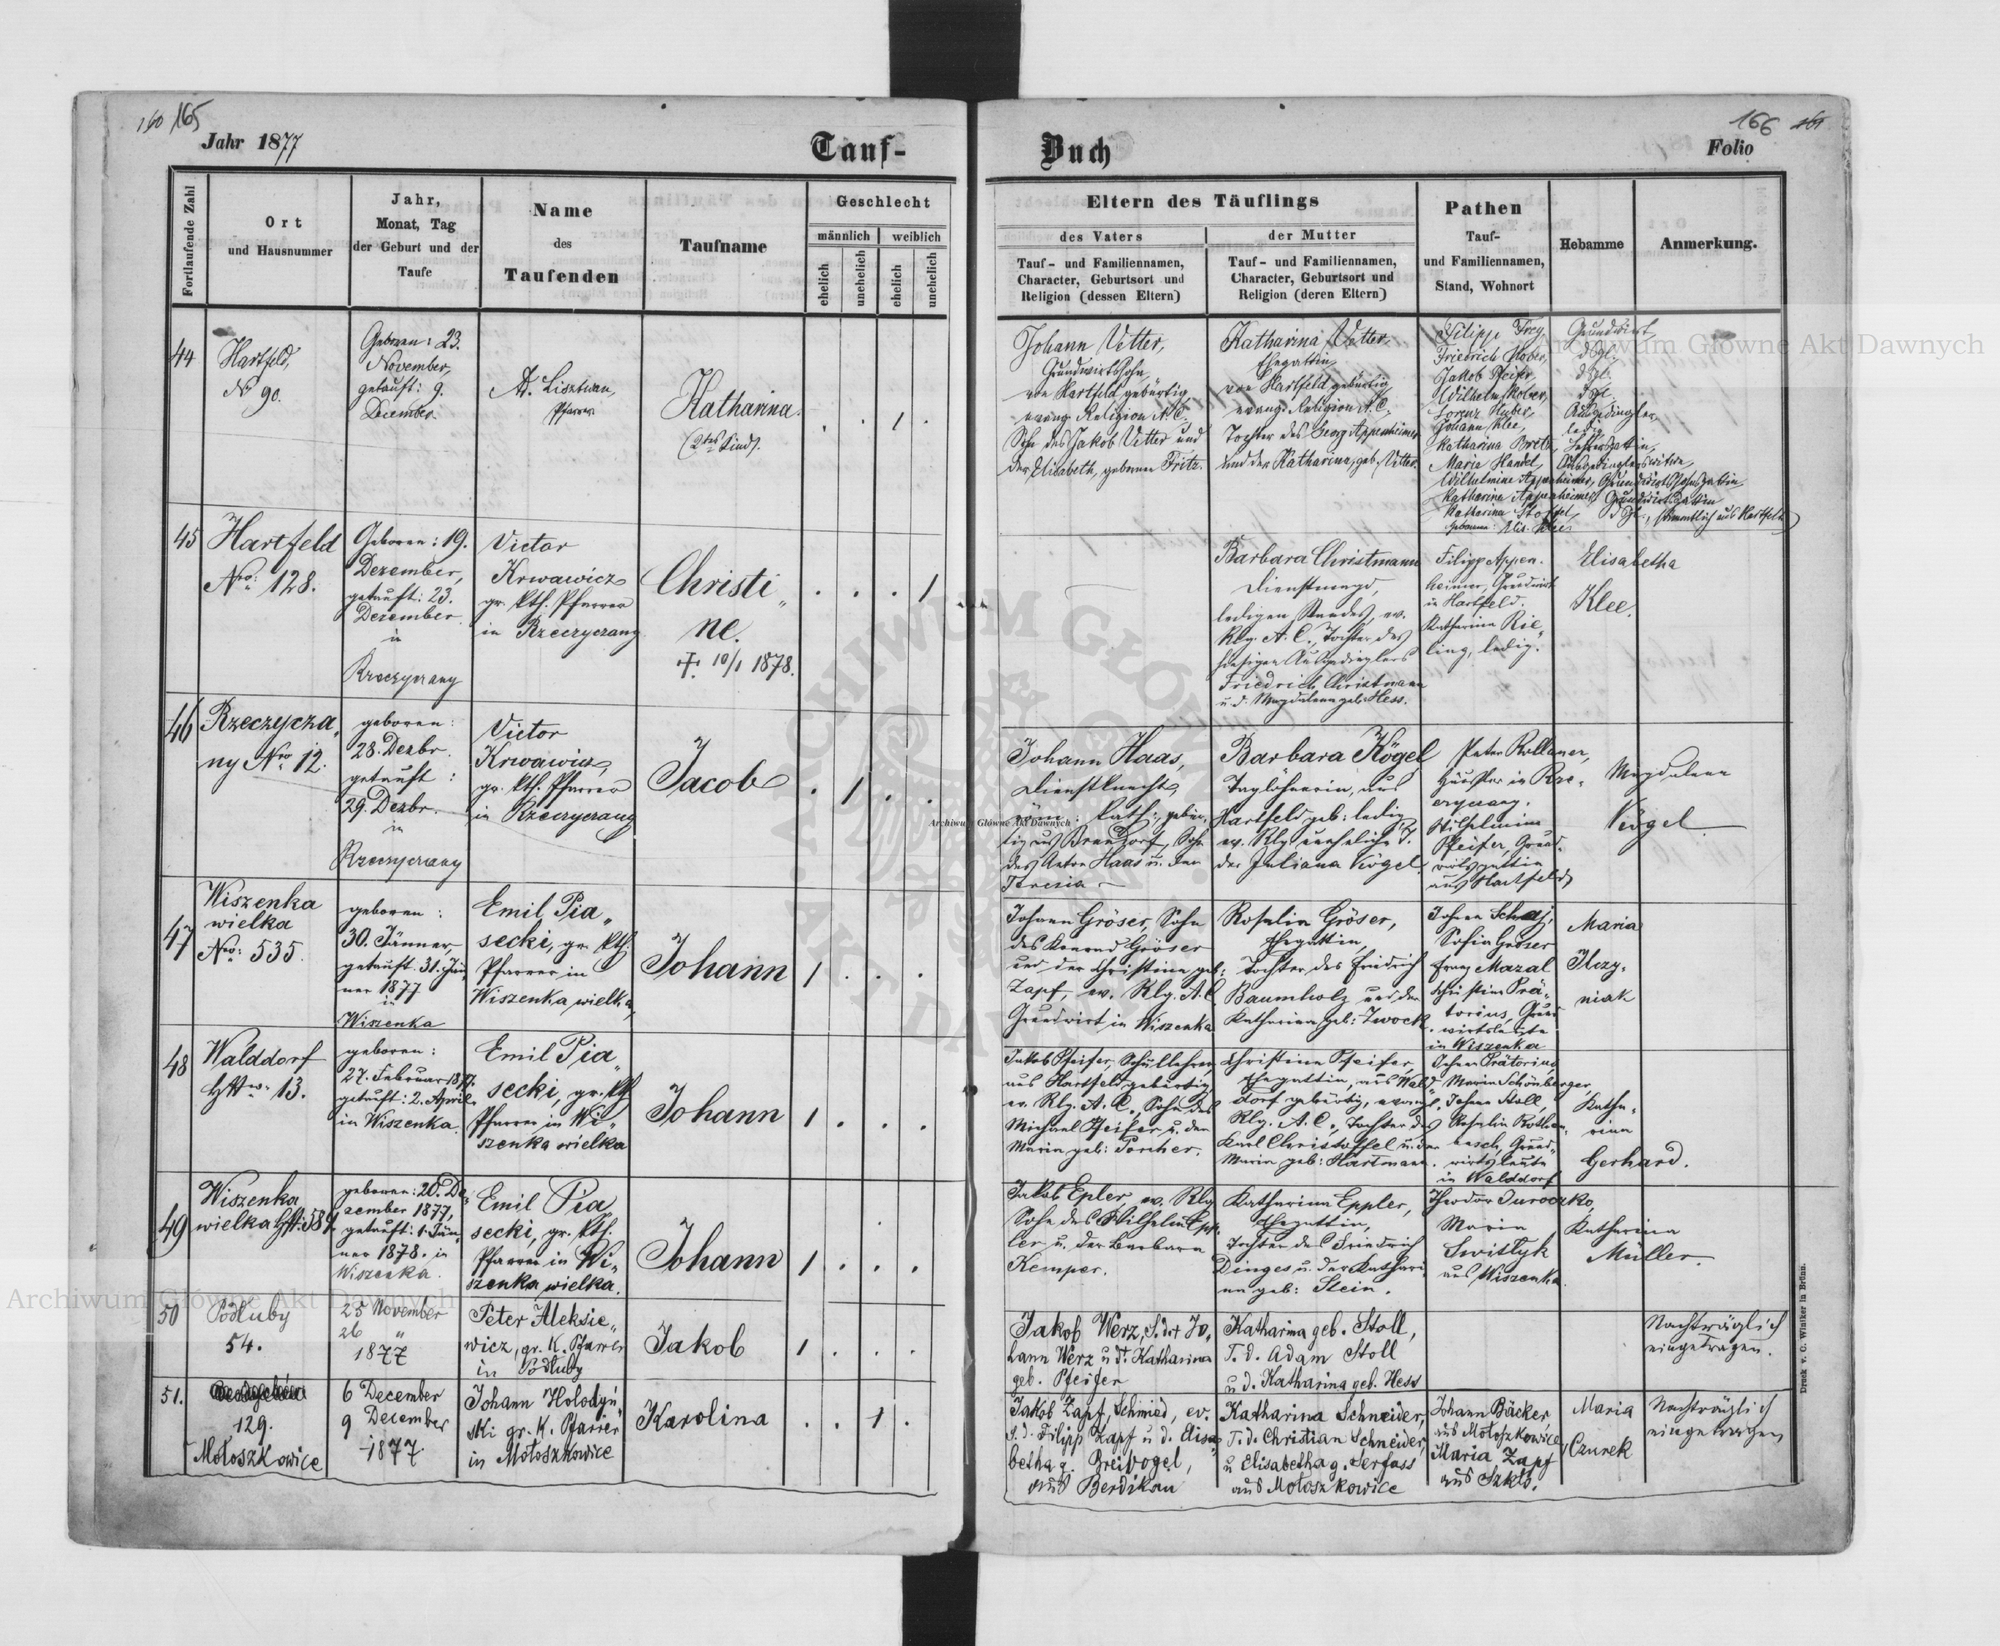 160 165
Jahr 1877
Tauf-
Buch
166 161
Folio
Fortlaufende Zahl
Ort
und Hausnummer
Jahr,
Monat, Tag
der Geburt und der
Taufe
Name
des
Taufenden
Taufname
Geschlecht
männlich
weiblich
ehelich
unehelich
ehelich
unehelich
Eltern des Täuflings
des Vaters
Tauf- und Familiennamen,
Character, Geburtsort und
Religion (dessen Eltern)
der Mutter
Tauf- und Familiennamen,
Character, Geburtsort und
Religion (deren Eltern)
Pathen
Tauf-
und Familiennamen,
Stand, Wohnort
Hebamme
Anmerkung.
44
Hartfeld,
No 90.
Geboren: 23.
November,
getauft: 9.
December.
A. Lisztwan,
Pfarrer.
Katharina.
(2tes Kind).
. . 1 .
Johann Vetter,
Grundwirtssohn,
von Hartfeld gebürtig,
evang. Religion A.C.,
Sohn des Jakob Vetter und
der Elisabeth, geborene Fritz.
Katharina Vetter,
Ehegattin,
von Hartfeld gebürtig,
evang. Religion A.C.,
Tochter des Georg Appenheimer
und der Katharina, geb. Vetter.
Filipp Frey, Grundwirt,
Friedrich Kober, dtgl.
Jakob Pfeifer, dtgl.
Wilhelm Kober, dtgl.
Lorenz Huber, Ausgedingler,
Johann Klee, ledig
Katharina Bretz, Lehrersgattin,
Maria Handel, Ausgedinglerswitwe,
Wilhelmine Appenheimer, Grundwirtssohnsgattin
Katharine Appenheimer, Grundwirtsgattin
Katharina Stoffel, dtgl., sämmtlich aus Hartfeld
Hebamme: Elis. Klee
45
Hartfeld
Nro: 128.
Geboren: 19.
Dezember,
getauft: 23.
Dezember
in
Rzeczyczany
Victor
Krwawicz
gr. kth. Pfarrer
in Rzeczyczany
Christi„
ne.
† 10/1 1878.
. . . 1
Barbara Christmann
Dienstmagd,
ledigen Standes, ev.
Rlg. A. C., Tochter des
hiesigen Ausgedinglers
Friedrich Christmann
u. d. Magdalena geb. Hess.
Filipp Appen-
heimer, Grundwirt
in Hartfeld.
Katharina Rie„
ling, ledig.
Elisabetha
Klee.
46
Rzeczycza„
ny Nro 12.
geboren:
28. Dezbr.
getauft:
29. Dezbr.
in
Rzeczyczany
Victor
Krwawicz,
gr. kth. Pfarrer
in Rzeczyczany
Jacob
. 1 . .
Johann Haas,
Dienstknecht,
röm: kath:, gebür„
tig aus Brundorf, Sohn
des Anton Haas u. der
Theresia
Barbara Kögel
Taglöhnerin, aus
Hartfeld geb: ledig,
ev. Rlg. uneheliche T.
der Juliana Kögel
Peter Rollauer,
Häusler in Rze„
czyczany.
Wilhelmine
Pfeifer, Grund„
wirtsgattin
aus Hartfeld
Magdalena
Kögel
47
Wiszenka
wielka
Nro: 535.
geboren:
30. Jänner
getauft 31. Jän„
ner 1877
in
Wiszenka
Emil Pia„
secki, gr. kth.
Pfarrer in
Wiszenka wielka,
Johann
1 . . .
Johann Gröser, Sohn
des Konrad Gröser
und der Christina geb:
Zapf, ev. Rlg. A.C.
Grundwirt in Wiszenka
Rosalia Gröser,
Ehegattin,
Tochter des Friedrich
Baumholz und der
Katharina geb: Zwock.
Johann Schaj,
Sofia Gröser
Franz Mazal
Christine Prä„
torius, Grund
wirtsleute
in Wiszenka
Maria
niak
48
Walddorf
HNro. 13.
geboren:
27. Februar 1877.
getauft: 2. April
in Wiszenka.
Emil Pia„
secki, gr. kth
Pfarrer in Wi„
szenka wielka
Johann
1 . . .
Jakob Pfeifer, Schullehrer,
aus Hartfeld gebürtig
ev. Rlg. A. C., Sohn des
Michael Pfeifer u. der
Maria geb: Porcher.
Christina Pfeifer,
Ehegattin, aus Wald„
dorf gebürtig, evangl.
Rlg. A.C., Tochter des
Karl Christoffel u. der
Maria geb: Hartmann.
Johann Prätorius,
Maria Schönberger,
Johann Stoll,
Rosalia Rothen„
basch, Grund„
wirtsleute
in Walddorf
Katha„
rina
Gerhard.
49
Wiszenka
wielka HN: 384
geboren: 20. De„
zember 1877,
getauft: 1. Jän„
ner 1878. in
Wiszenka.
Emil Pia„
secki, gr. kth.
Pfarrer in Wi„
szenka wielka.
Johann
1 . . .
Jakob Epler, ev. Rlg
Sohn des Wilhelm Epp„
ler u. der Barbara
Kemper.
Katharina Eppler,
Ehegattin,
Tochter des Friedrich
Dinges u. der Kathari„
na geb: Stein.
Theodor Turoczko,
Maria
Switlyk
aus Wiszenka.
Katharina
Müller.
50
Podłuby
54.
25 November
26 „
1877
Peter Aleksie„
wicz, gr. K. Pfarrer
in Podłuby
Jakob
1 . . .
Jakob Werz, S. der Jo„
hann Werz u. d. Katharina
geb. Pfeifer
Katharina geb. Stoll,
T. d. Adam Stoll
u. d. Katharina geb. Hess
Nachträglich
eingetragen.
51.
129.
Mołoszkowice
6 December
9 December
1877
Johann Hołodyń„
ski gr. K. Pfarrer
in Mołoszkowice
Karolina
. . 1 .
Jakob Zapf, Schmied, ev.
S. d. Filipp Zapf u. d. Elisa„
betha g. Breivogel,
aus Berdikau
Katharina Schneider,
T. d. Christian Schneider,
u Elisabetha g. Serfass
aus Mołoszkowice
Johann Bäcker,
aus Mołoszkowice
Maria Zapf
aus Szkło.
Maria
Czurek
Nachträglich
eingetragen
Druck v. C. Winiker in Brünn.
Archiwum Główne Akt Dawnych
Archiwum Główne Akt Dawnych
Archiwum Główne Akt Dawnych
ARCHIWUM GŁÓWNE AKT DAWNYCH